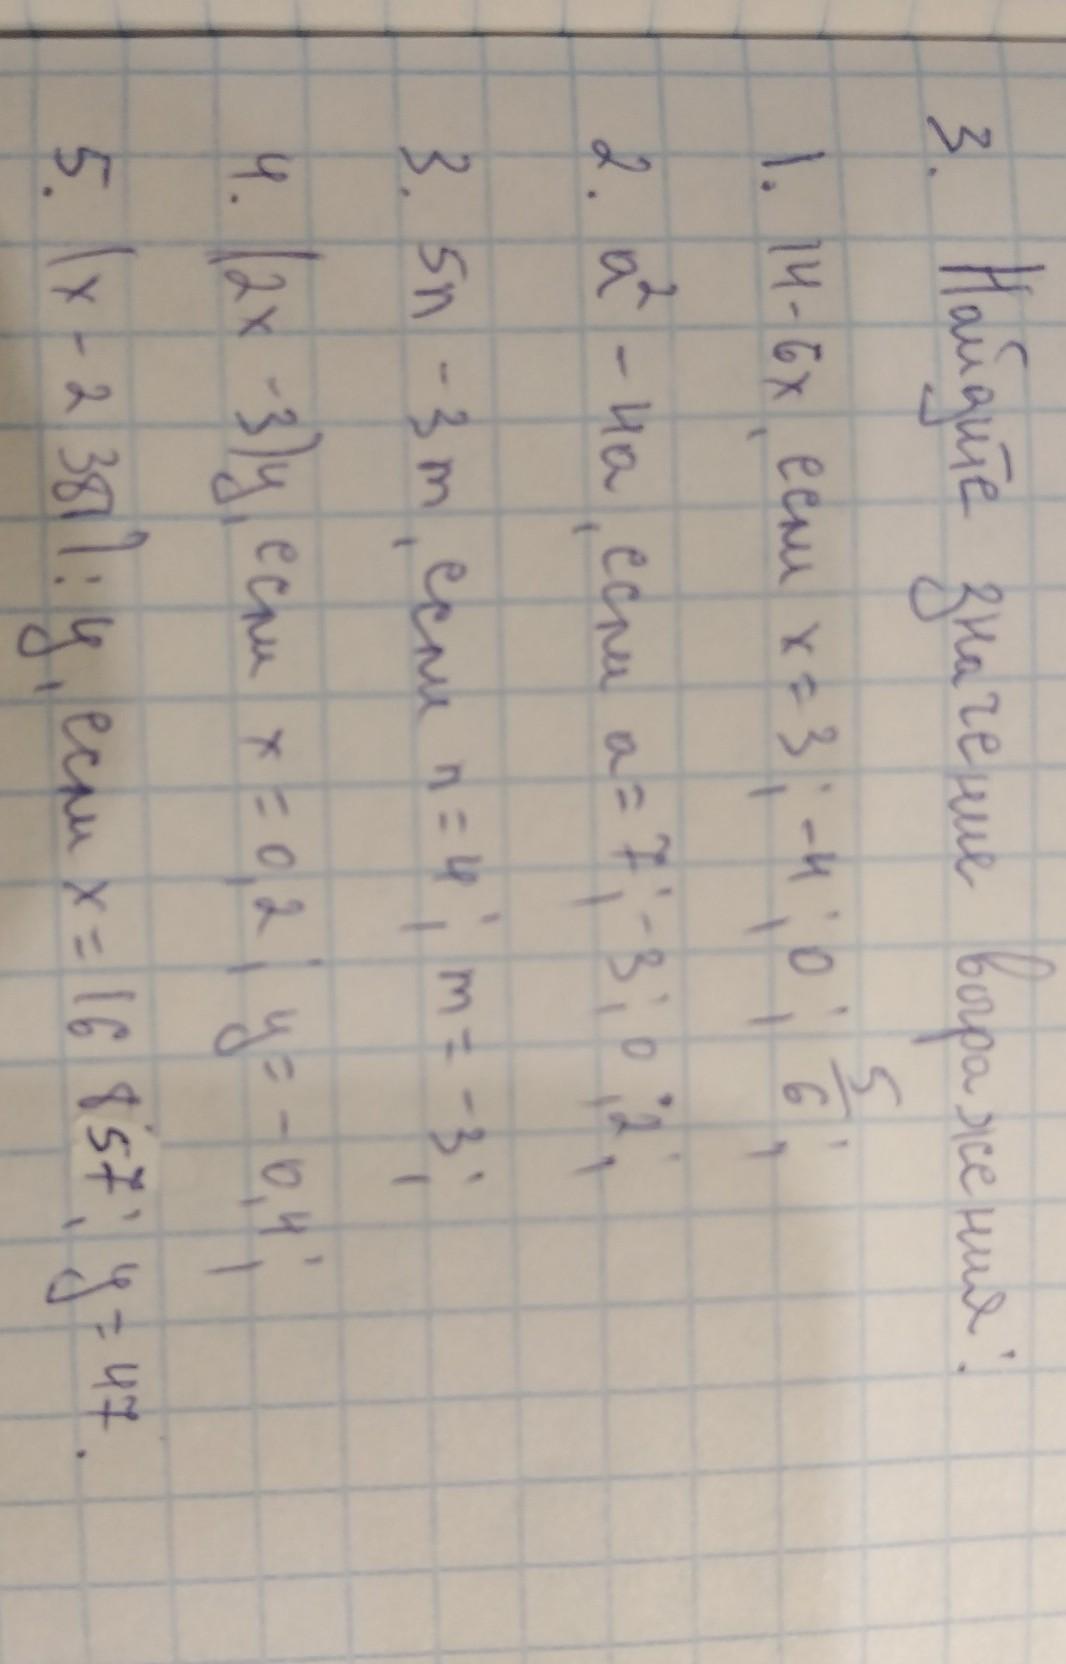 3. Найдите значение выражения:
1. 14-6x, если x=3; -4; 0; 5/6;
2. a² - 4a, если a=7; -3; 0; 2;
3. 5n - 3m, если n=4; m= -3;
4. (2x -3)y, если x=0,2; y= -0,4;
5. (x - 2 387):y, если x= 16 857; y=47.